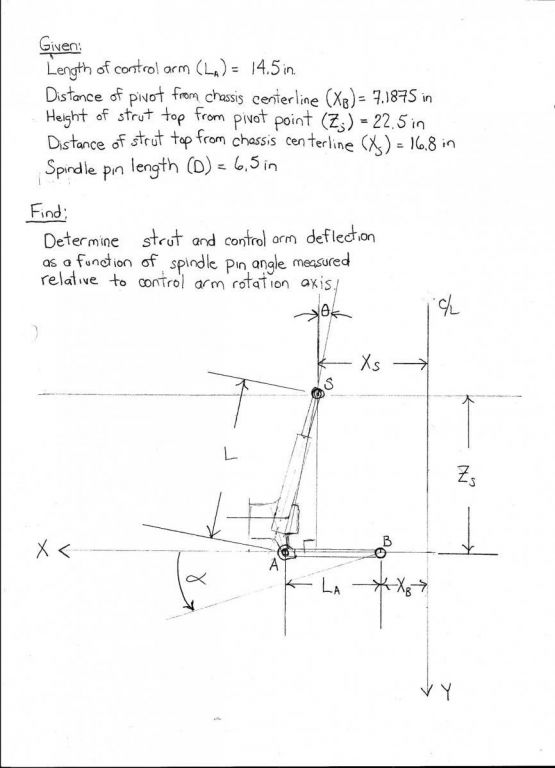 Given:
Length of control arm (LA) = 14.5 in.
Distance of pivot from chassis centerline (XB) = 7.1875 in
Height of strut top from pivot point (Zs) = 22.5 in
Distance of strut top from chassis centerline (Xs) = 16.8 in
Spindle pin length (D) = 6.5 in
Find:
Determine strut and control arm deflection
as a function of spindle pin angle measured
relative to control arm rotation axis.
θ
C/L
Xs
S
L
Zs
X
A
B
α
LA
XB
Y